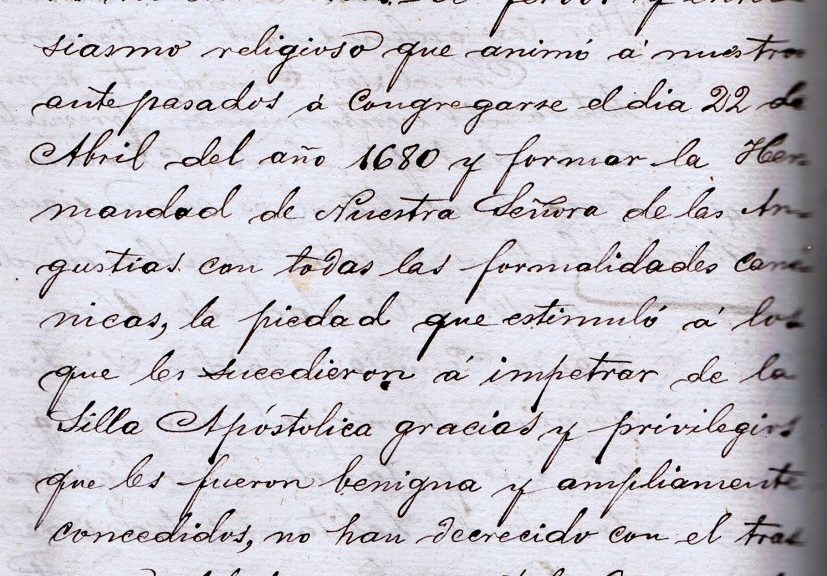 el fervor y entu-
siasmo religioso que animó á nuestros
antepasados á Congregarse el dia 22 de
Abril del año 1680 y formar la Her-
mandad de Nuestra Señora de las An-
gustias con todas las formalidades canó-
nicas, la piedad que estimuló á los
que les sucedieron á impetrar de la
Silla Apóstolica gracias y privilegios
que les fueron benigna y ampliamente
concedidos, no han decrecido con el tras